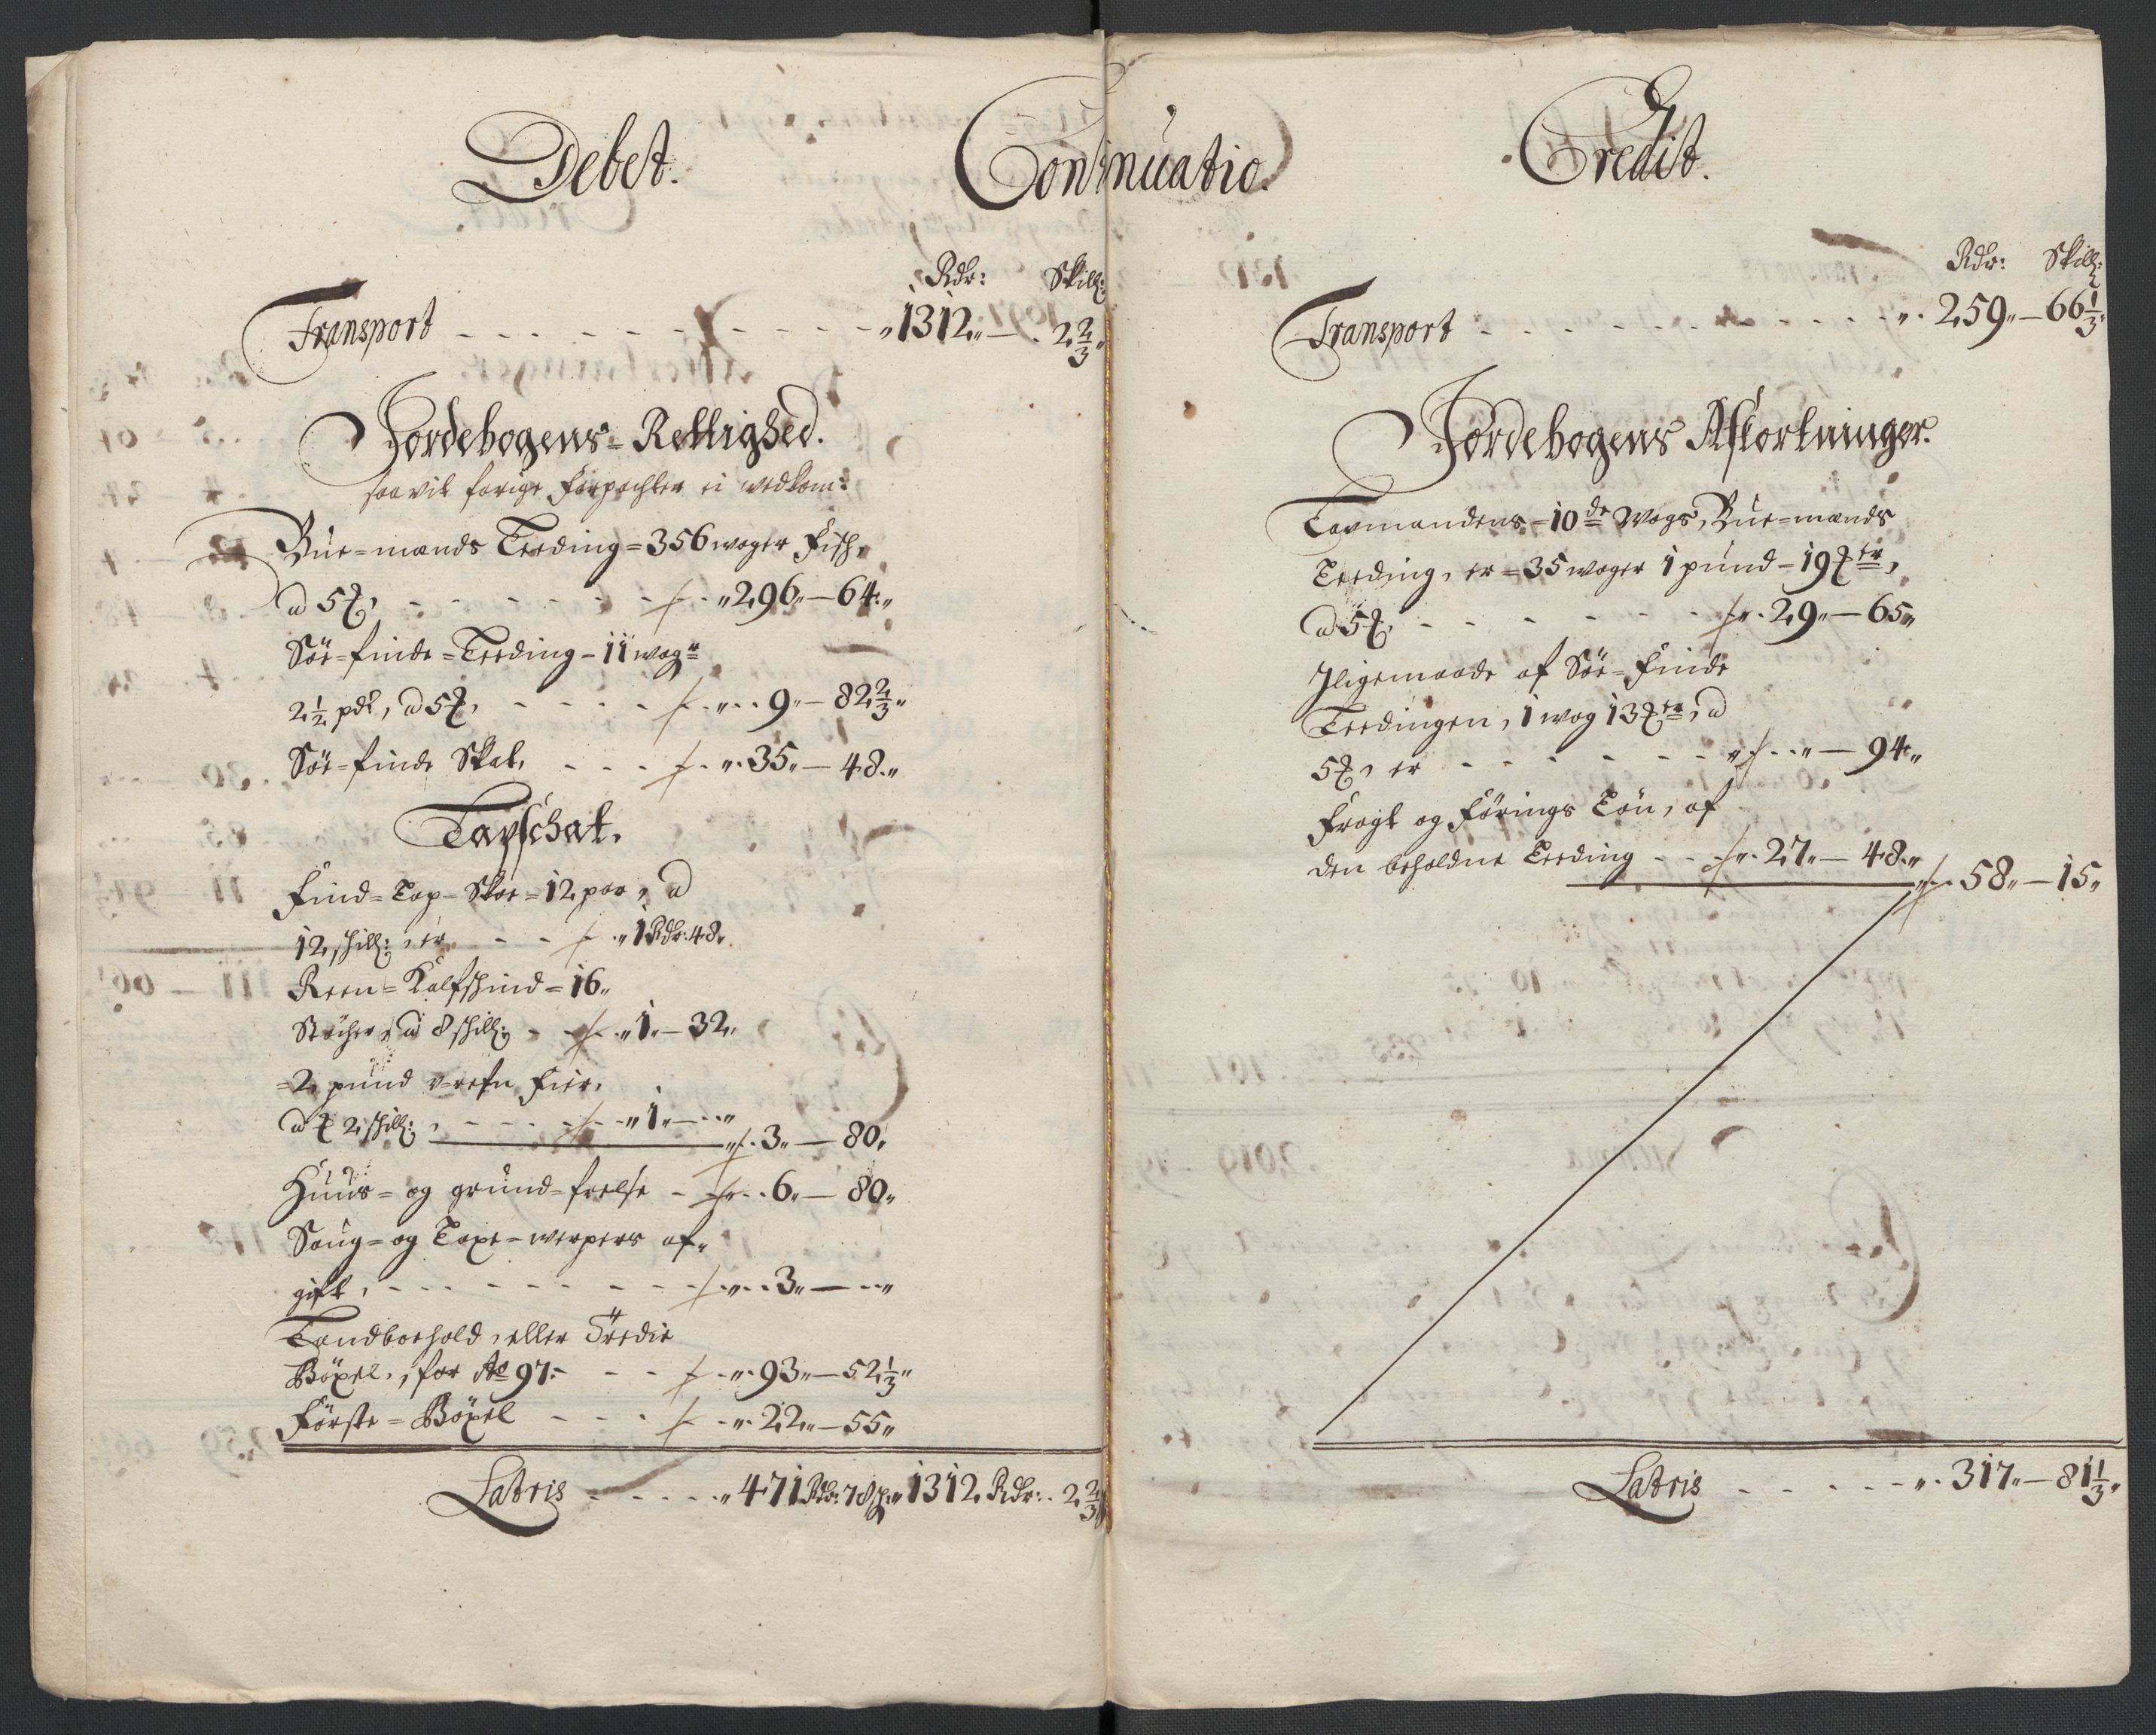 Debet. Continuatio. Credit.
Rdr: Skill:
Transport - - - - „1312„ — 2 2/3„
Jordebogens-Rettighed.
saavit forige Forpachter ei vedkom:
Bue=mands Leeding=356 woger Fisk,
a 5 ℔, - - - - „296„ — 64„
Söe=finde=Leeding - 11 wogr
2 1/2 pdt, a 5 ℔, - - - - „9„ — 82 2/3„
Söe=finde Skat, - - - „35„ — 48„
Lapschat.
Find=Lap-Skoe=12 par, a
12 skill: er - - „1 Rdr: 48„
Reen=Kalfskind=16„
Stöcher, a 8 skill: - - „1„ — 32„
=2 pund Fier,
a ℔ 2 skill:, - - - - „1„ — „
„3„ — 80„
Huus= og grund=frelse - - „6„ — 80„
Saug= og Laxe=werpers af„
gift, - - - - „3„ — „
Landboehold, eller Tredie
Böxel, for Ao 97: - - - „93„ — 52 1/3„
Förste=Böxel - - - „22„ — 55„
Latris - - - - „471 Rdr: 78 s: „1312 Rdr: 2 2/3
Rdr: Skill:
Transport - - - - „259„ — 66 1/3„
Jordebogens Afkortninger.
Lavmandens=10de Wogs, Bue=mands
Leeding, er=35 woger 1 pund - 19 ℔er,
a 5 ℔, - - - - „29„ — 65„
Iligemaade af Söe=Finde
Leedingen, 1 wog 13 ℔er, a
5 ℔, er - - - - „ „ — 94„
Fragt og Förings Lön, af
den beholdne Leeding - - „27„ — 48„
„58„ — 15„
Latris - - - - „317„ — 81 1/3„